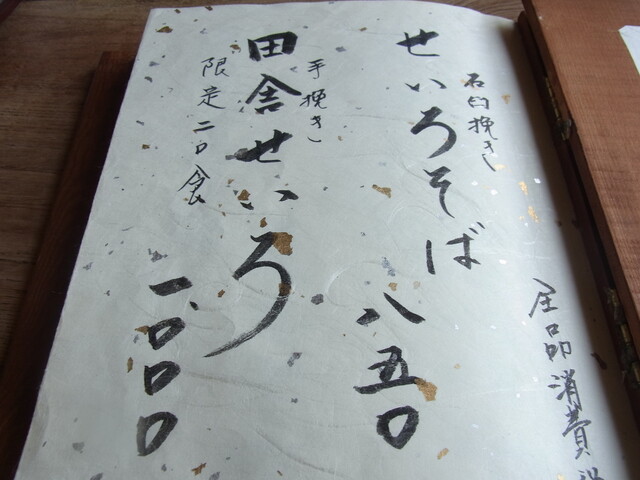 全品消費税
石臼挽き
せいろそば
八五〇
手挽き
田舎せいろ
限定二〇食
一、〇〇〇